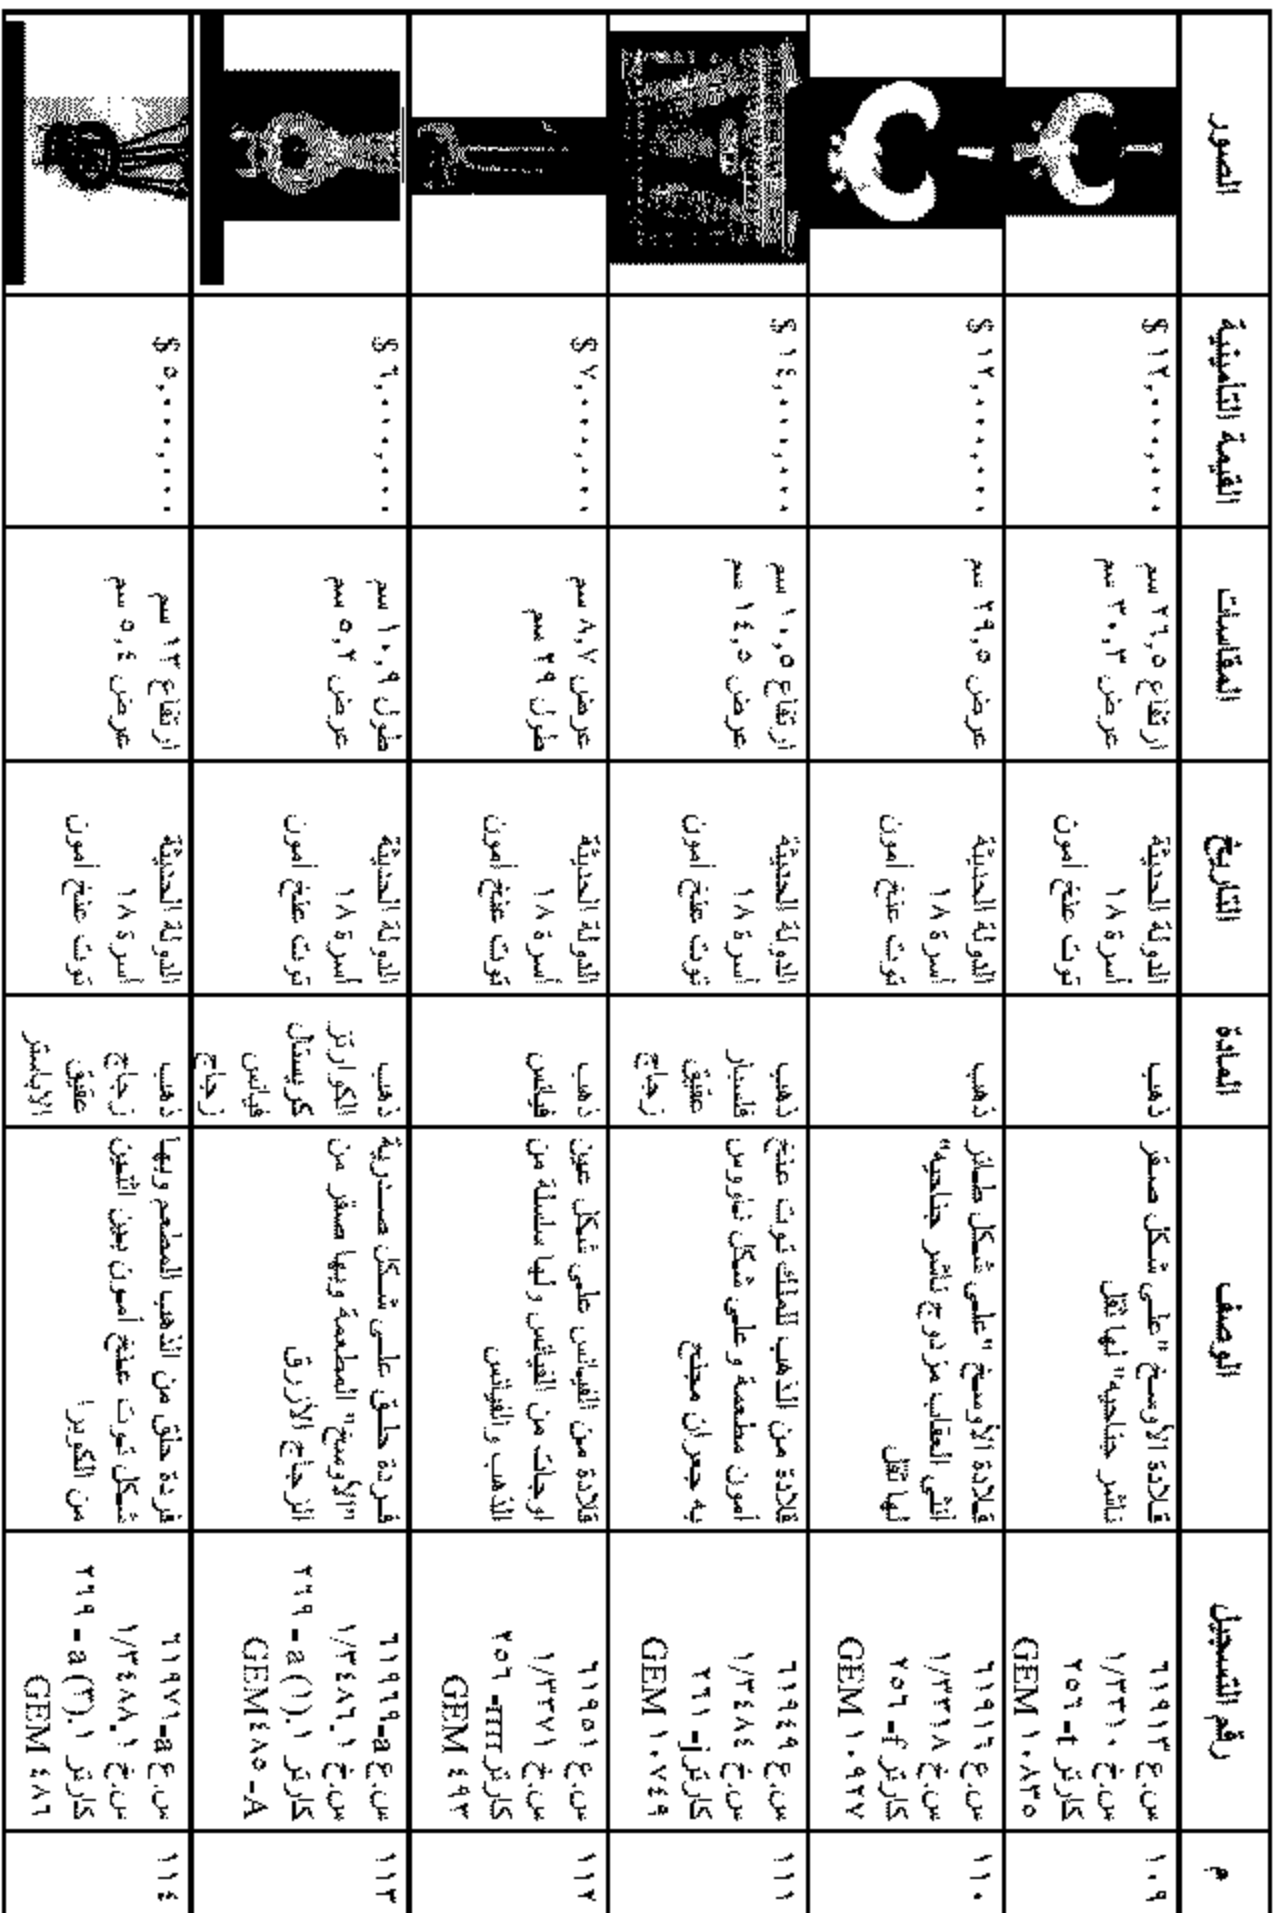 م
رقم التسجيل
الوصف
المادة
التاريخ
المقاسات
القيمة التأمينية
الصور
١٠٩
س.ع ٦١٩١٣
س.خ ١/٣٣١٠
كارتر ٢٥٦-t
GEM ١٠٨٣٥
قلادة الأوسخ "على شكل صقر
ناشر جناحيه" لها ثقل
ذهب
الدولة الحديثة
أسرة ١٨
توت عنخ أمون
ارتفاع ٢٦,٥ سم
عرض ٣٠,٣ سم
١٢,٠٠٠,٠٠٠ $
١١٠
س.ع ٦١٩١٦
س.خ ١/٣٣٦٨
كارتر ٢٥٦-f
GEM ١٠٩٢٧
قلادة الأوسخ "على شكل طائر
أنثى العقاب مزدوج ناشر جناحيه"
لها ثقل
ذهب
الدولة الحديثة
أسرة ١٨
توت عنخ أمون
عرض ٣٩,٥ سم
١٢,٠٠٠,٠٠٠ $
١١١
س.ع ٦١٩٤٩
س.خ ١/٣٤٨٤
كارتر ٢٦١-j
GEM ١٠٧٤٩
قلادة من الذهب للملك توت عنخ
أمون مطعمة وعلى شكل ناووس
به جعران مجنح
ذهب
فلسبار
عقيق
زجاج
الدولة الحديثة
أسرة ١٨
توت عنخ أمون
ارتفاع ١٠,٥ سم
عرض ١٤,٥ سم
١٤,٠٠٠,٠٠٠ $
١١٢
س.ع ٦١٩٥١
س.خ ١/٣٣٧١
كارتر ٢٥٦-
GEM ٤٩٣
قلادة من الفيانس على شكل عين
اوجات من الفيانس ولها سلسلة من
الذهب والفيانس
ذهب
فيانس
الدولة الحديثة
أسرة ١٨
توت عنخ أمون
عرض ٨,٧ سم
طول ٢٩ سم
٧,٠٠٠,٠٠٠ $
١١٣
س.ع ٦١٩٦٩-a
س.خ ١/٣٤٨٦.١
كارتر ٢٦٩-a (١).١
GEM٤٨٥-A
فردة حلق على شكل صدرية
"الأوسخ" المطعمة وبها صقر من
الزجاج الأزرق
ذهب
الكوارتز
كريستال
فيانس
زجاج
الدولة الحديثة
أسرة ١٨
توت عنخ أمون
طول ١٠,٩ سم
عرض ٥,٢ سم
٦,٠٠٠,٠٠٠ $
١١٤
س.ع ٦١٩٧١-a
س.خ ١/٣٤٨٨.١
كارتر ٢٦٩-a (٣).١
GEM ٤٨٦
فردة حلق من الذهب المطعم وبها
شكل توت عنخ أمون بين اثنين
من الكوبرا
ذهب
زجاج
عقيق
الالباستر
الدولة الحديثة
أسرة ١٨
توت عنخ أمون
ارتفاع ١٣ سم
عرض ٥,٤ سم
٥,٠٠٠,٠٠٠ $